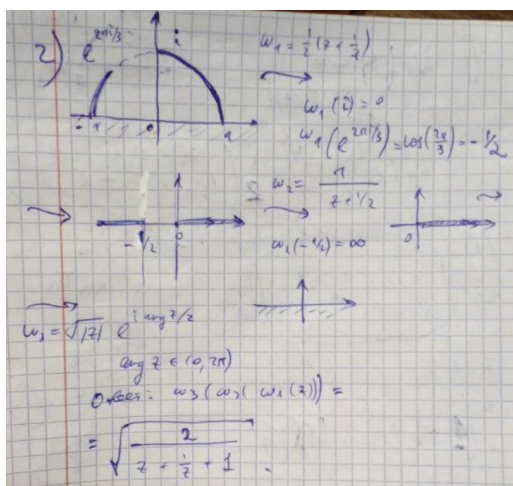 2) e^{2πi/3} i
-1 0 1
w₁ = 1/2 (z + 1/z)
w₁(i) = 0
w₁(e^{2πi/3}) = cos(2π/3) = -1/2
-1/2 0
w₂ = 1/(z + 1/2)
w₂(-1/2) = ∞
0
w₃ = √|z| e^{i arg z/2}
arg z ∈ (0, 2π)
Ответ: w₃(w₂(w₁(z))) =
= √(2/(z + 1/z + 1)).